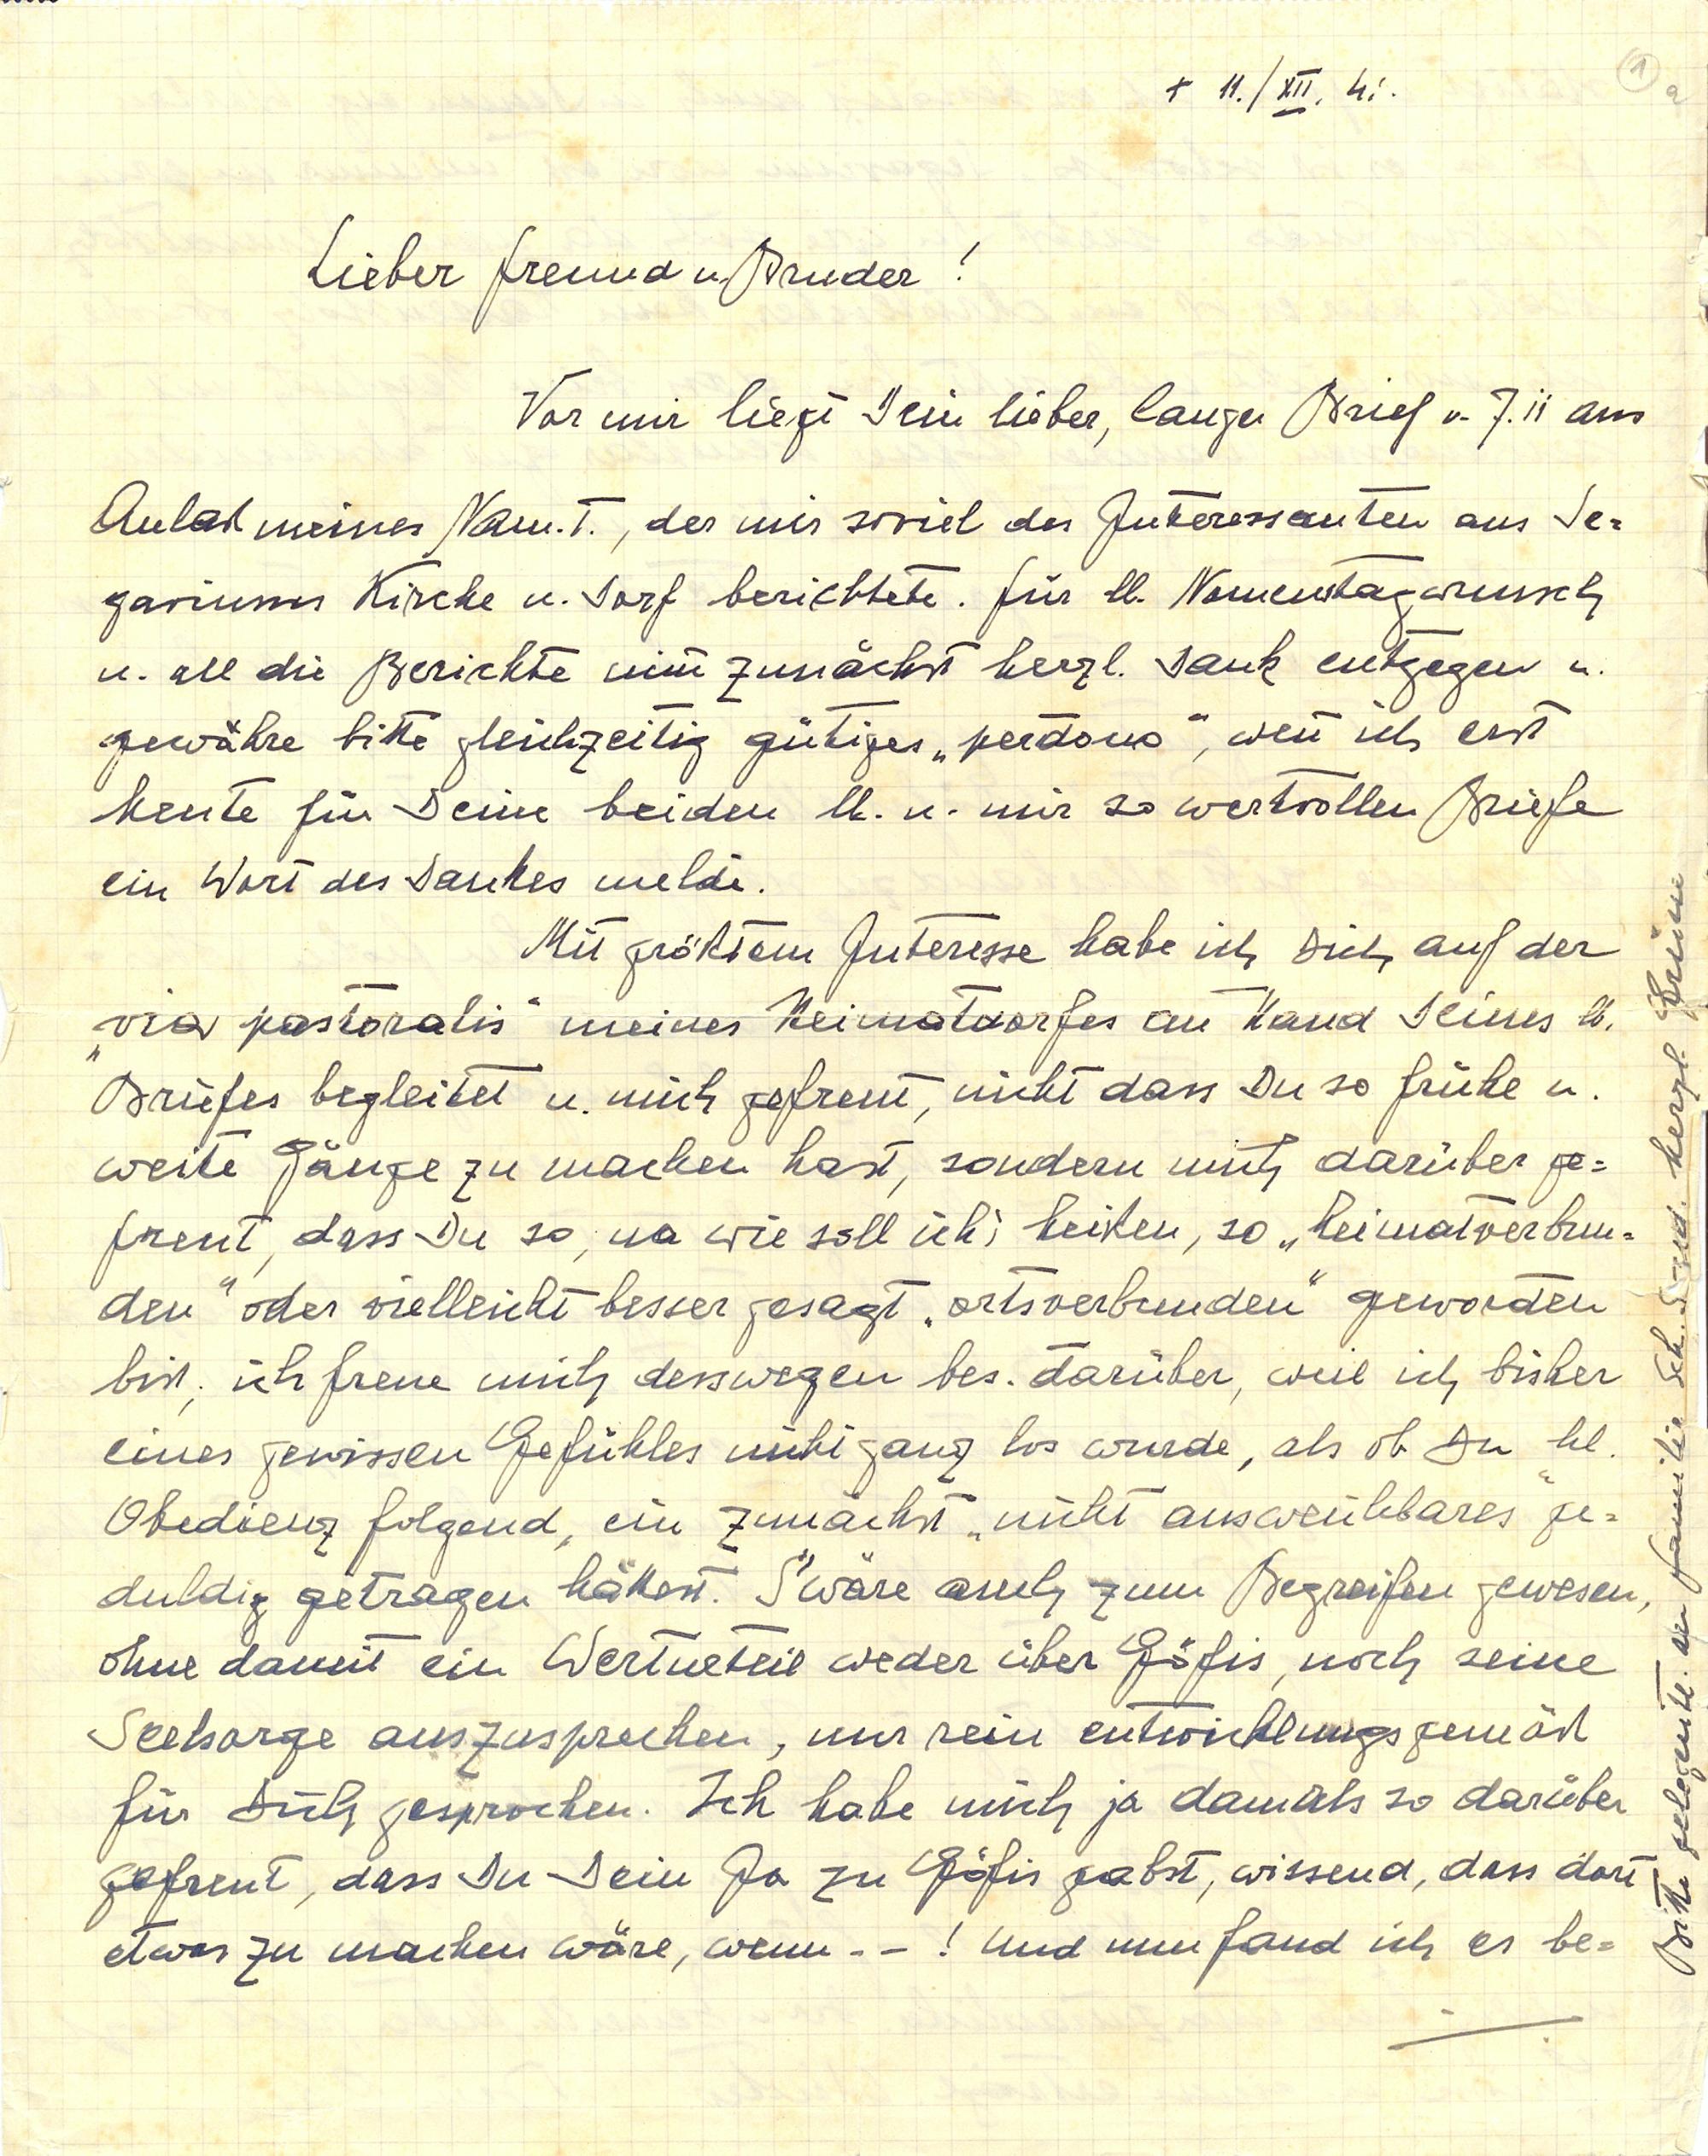 1
a
+ 11./XII. 41.
Lieber Freund u. Bruder!
Vor mir liegt Dein lieber, langer Brief v. 7.11 aus
Anlaß meines Nam.T., der mir soviel des Interessanten aus Se=
gavinus Kirche u. Dorf berichtete. Für lb. Namenstagwunsch
u. all die Berichte nim̄ zunächst herzl. Dank entgegen u.
gewähre bitte gleichzeitig gütiges „perdono", wen̄ ich erst
heute für Deine beiden lb. u. mir so wertvollen Briefe
ein Wort des Dankes melde.
Mit größtem Interesse habe ich Dich auf der
„via pastoralis" meines Heimatdorfes an Hand Deines lb.
Briefes begleitet u. mich gefreut, nicht dass Du so frühe u.
weite Gänge zu machen hast, sondern mich darüber ge=
freut, dass Du so, na wie soll ich's heißen, so „heimatverbun=
den" oder vielleicht besser gesagt „ortsverbunden" geworden
bist; ich freue mich desswegen bes. darüber, weil ich bisher
eines gewissen Gefühles nicht ganz los wurde, als ob Du hl.
Obedienz folgend, ein zunächst „nicht ausweichbares" ge=
duldig getragen hättest. S'wäre auch zum Begreifen gewesen,
ohne damit ein Werturteil weder über Göfis, noch seine
Seelsorge auszusprechen, nur rein entwicklungsgemäß
für Dich gesprochen. Ich habe mich ja damals so darüber
gefreut, dass Du Dein Ja zu Göfis gabst, wissend, dass dort
etwas zu machen wäre, wenn - - ! Und nun fand ich es be=
Bitte gelegentl. der Familie Sch. Sond. herzl. Grüße